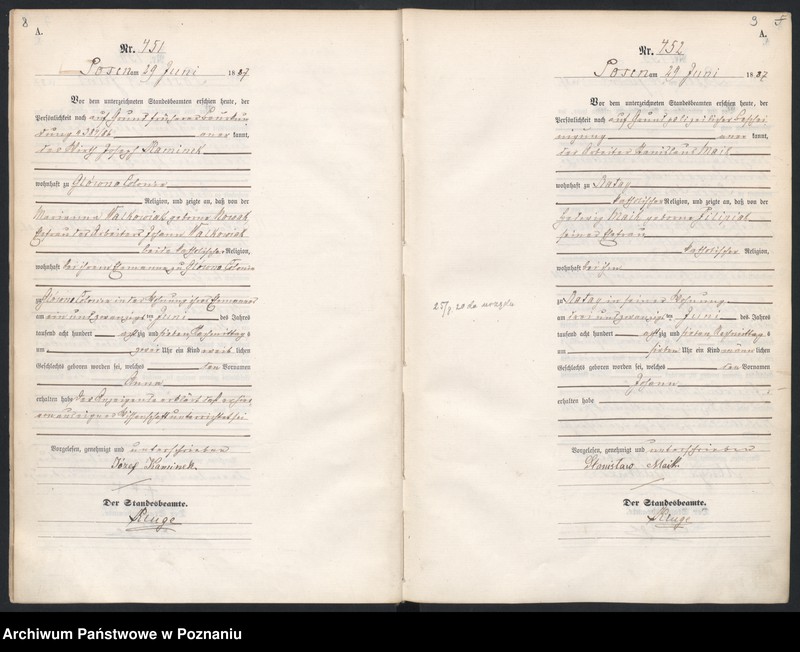 8
A.
Nr. 451
Posen am 29 Juni 1887
Vor dem unterzeichneten Standesbeamten erschien heute, der
Persönlichkeit nach auf Grund früherer
anerkannt,
der Wirth Joseph Kaminek
wohnhaft zu Glowno Colonie
Religion, und zeigte an, daß von der
Marianna Walkowiak geborne Nowak
Ehefrau des Arbeiters Johann Walkowiak
beide katholischer Religion,
wohnhaft bei ihrem Ehemanne zu Glowno Colonie
zu Glowno Colonie in der Wohnung ihres Ehemannes
am ein und zwanzigsten Juni des Jahres
tausend acht hundert achtzig und sieben Nachmittags
um zwei Uhr ein Kind weiblichen
Geschlechts geboren worden sei, welches den Vornamen
Anna
erhalten habe Der Anzeigende erklärt daß er
von aus eigner Wissenschaft unterrichtet sei
Vorgelesen, genehmigt und unterschrieben
Józef Kaminek.
Der Standesbeamte.
Kluge
9
A.
Nr. 452
Posen am 29 Juni 1887
Vor dem unterzeichneten Standesbeamten erschien heute, der
Persönlichkeit nach auf Grund polizeilicher Beschei
nigung anerkannt,
der Arbeiter Stanislaus Maik
wohnhaft zu Rataj
katholischer Religion, und zeigte an, daß von der
Hedwig Maik geborne Filipiak
seiner Ehefrau
katholischer Religion,
wohnhaft bei ihm
zu Rataj in seiner Wohnung
am drei und zwanzigsten Juni des Jahres
tausend acht hundert achtzig und sieben Nachmittags
um sieben Uhr ein Kind männlichen
Geschlechts geboren worden sei, welches den Vornamen
Johann
erhalten habe
Vorgelesen, genehmigt und unterschrieben
Stanisław Maik
Der Standesbeamte.
Kluge
Archiwum Państwowe w Poznaniu